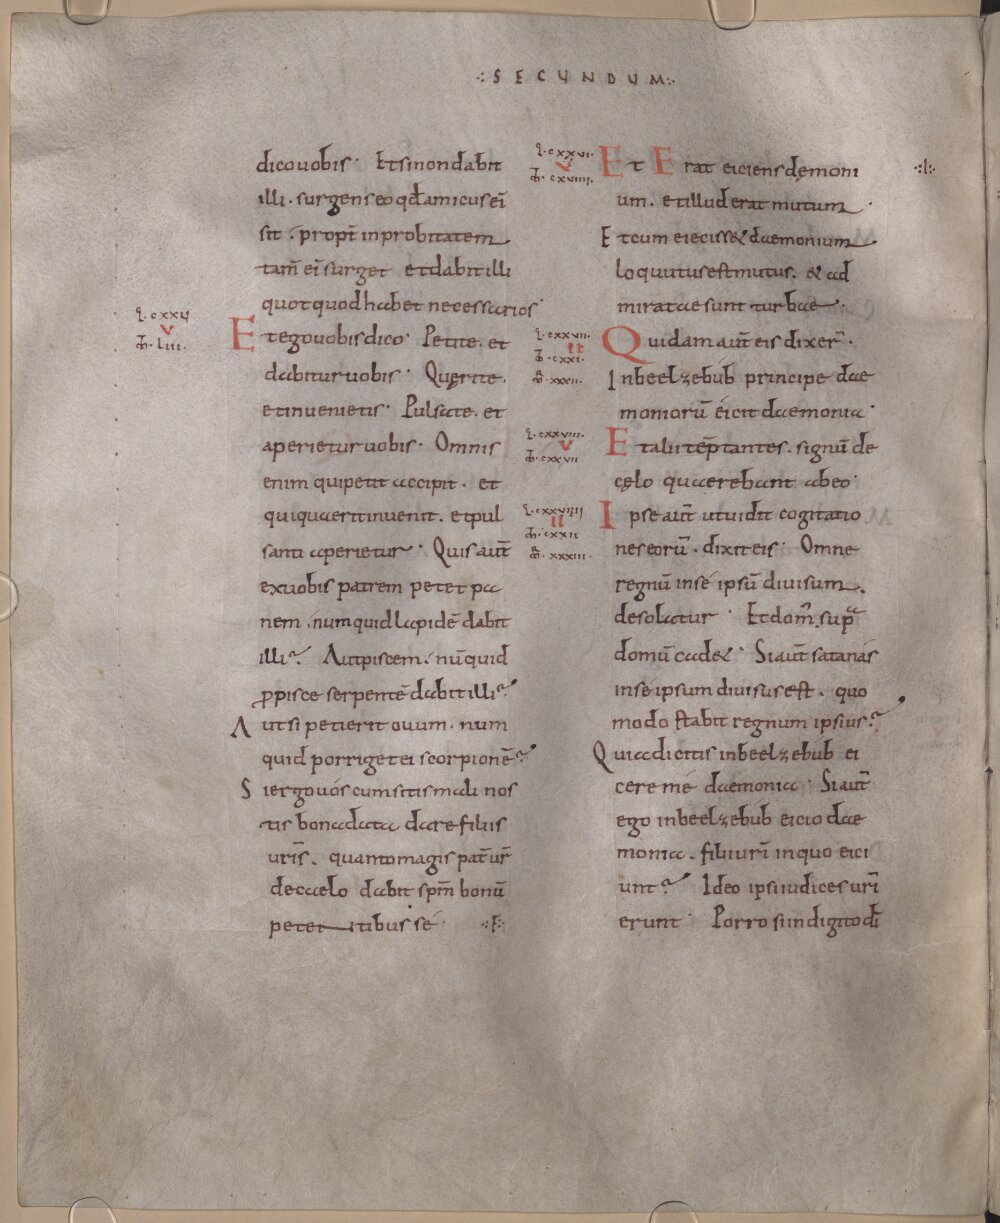 ·:SECUNDUM:·
dico uobis· Et si non dabit
illi· surgens eo qđ amicus ei̅
sit· propt̅ inprobitatem
tam̅ ei̅ surget et dabit illi
quotquod habet necessarios·
l·cxxv
v
m̅t·liii·
Et ego uobis dico· Petite· et
dabitur uobis· Quęrite·
et inuenietis· Pulsate· et
aperietur uobis· Omnis
enim qui petit accipit· et
qui quaerit inuenit· et pul
santi aperietur· Quis aut̅
ex uobis patrem petet pa
nem· numquid lapidē dabit
illi? Aut piscem· nū quid
p̱ pisce serpentē dabit illi?
Aut si petierit ouum· num
quid porriget ei scorpionē?
Si ergo uós cum sitis mali nos
tis bona data dare filiis
uris̅· quanto magis pat̅ ur̅
de caelo dabit sp̅m bonū
petentibus sé ·:F:·
l·cxxvi·
v
m̅t·cxviiii·
Et Erat eiciens dęmoni
·:l:·
um· et illud erat mutum·
Et cum eiecisset daemonium·
loquutus est mutus· & ad
miratae sunt turbae·
l·cxxvii·
ii
m̅t·cxxi·
m̅r·xxxii·
Quidam aut̅ eis dixer̅·
In beelzebub principe dae
moniorū éicit daemonia·
l·cxxviii·
v
m̅t·cxxvii
Et alii tēptantes· signū de
cęlo quaerebant ab eo·
l·cxxviiii
ii
m̅t·cxxii
m̅r·xxxiii·
Ipse aut̅ ut uidit cogitatio
nes eorū· dixit eis· Omne
regnū in sé ipsū diuisum·
desolatur· Et dom̅· supᵃ
domū cadet· Si aut̅ satanas
in sé ipsum diuisus est· quo
modo stabit regnum ipsius?
Quia dicitis in beelzebub ei
cere mé daemonia· Si aut̅
ego in beelzebub eicio dae
monia· filii uri̅ in quo eici
unt? Ideo ipsi iudices uri̅
erunt· Porro si in digito di̅